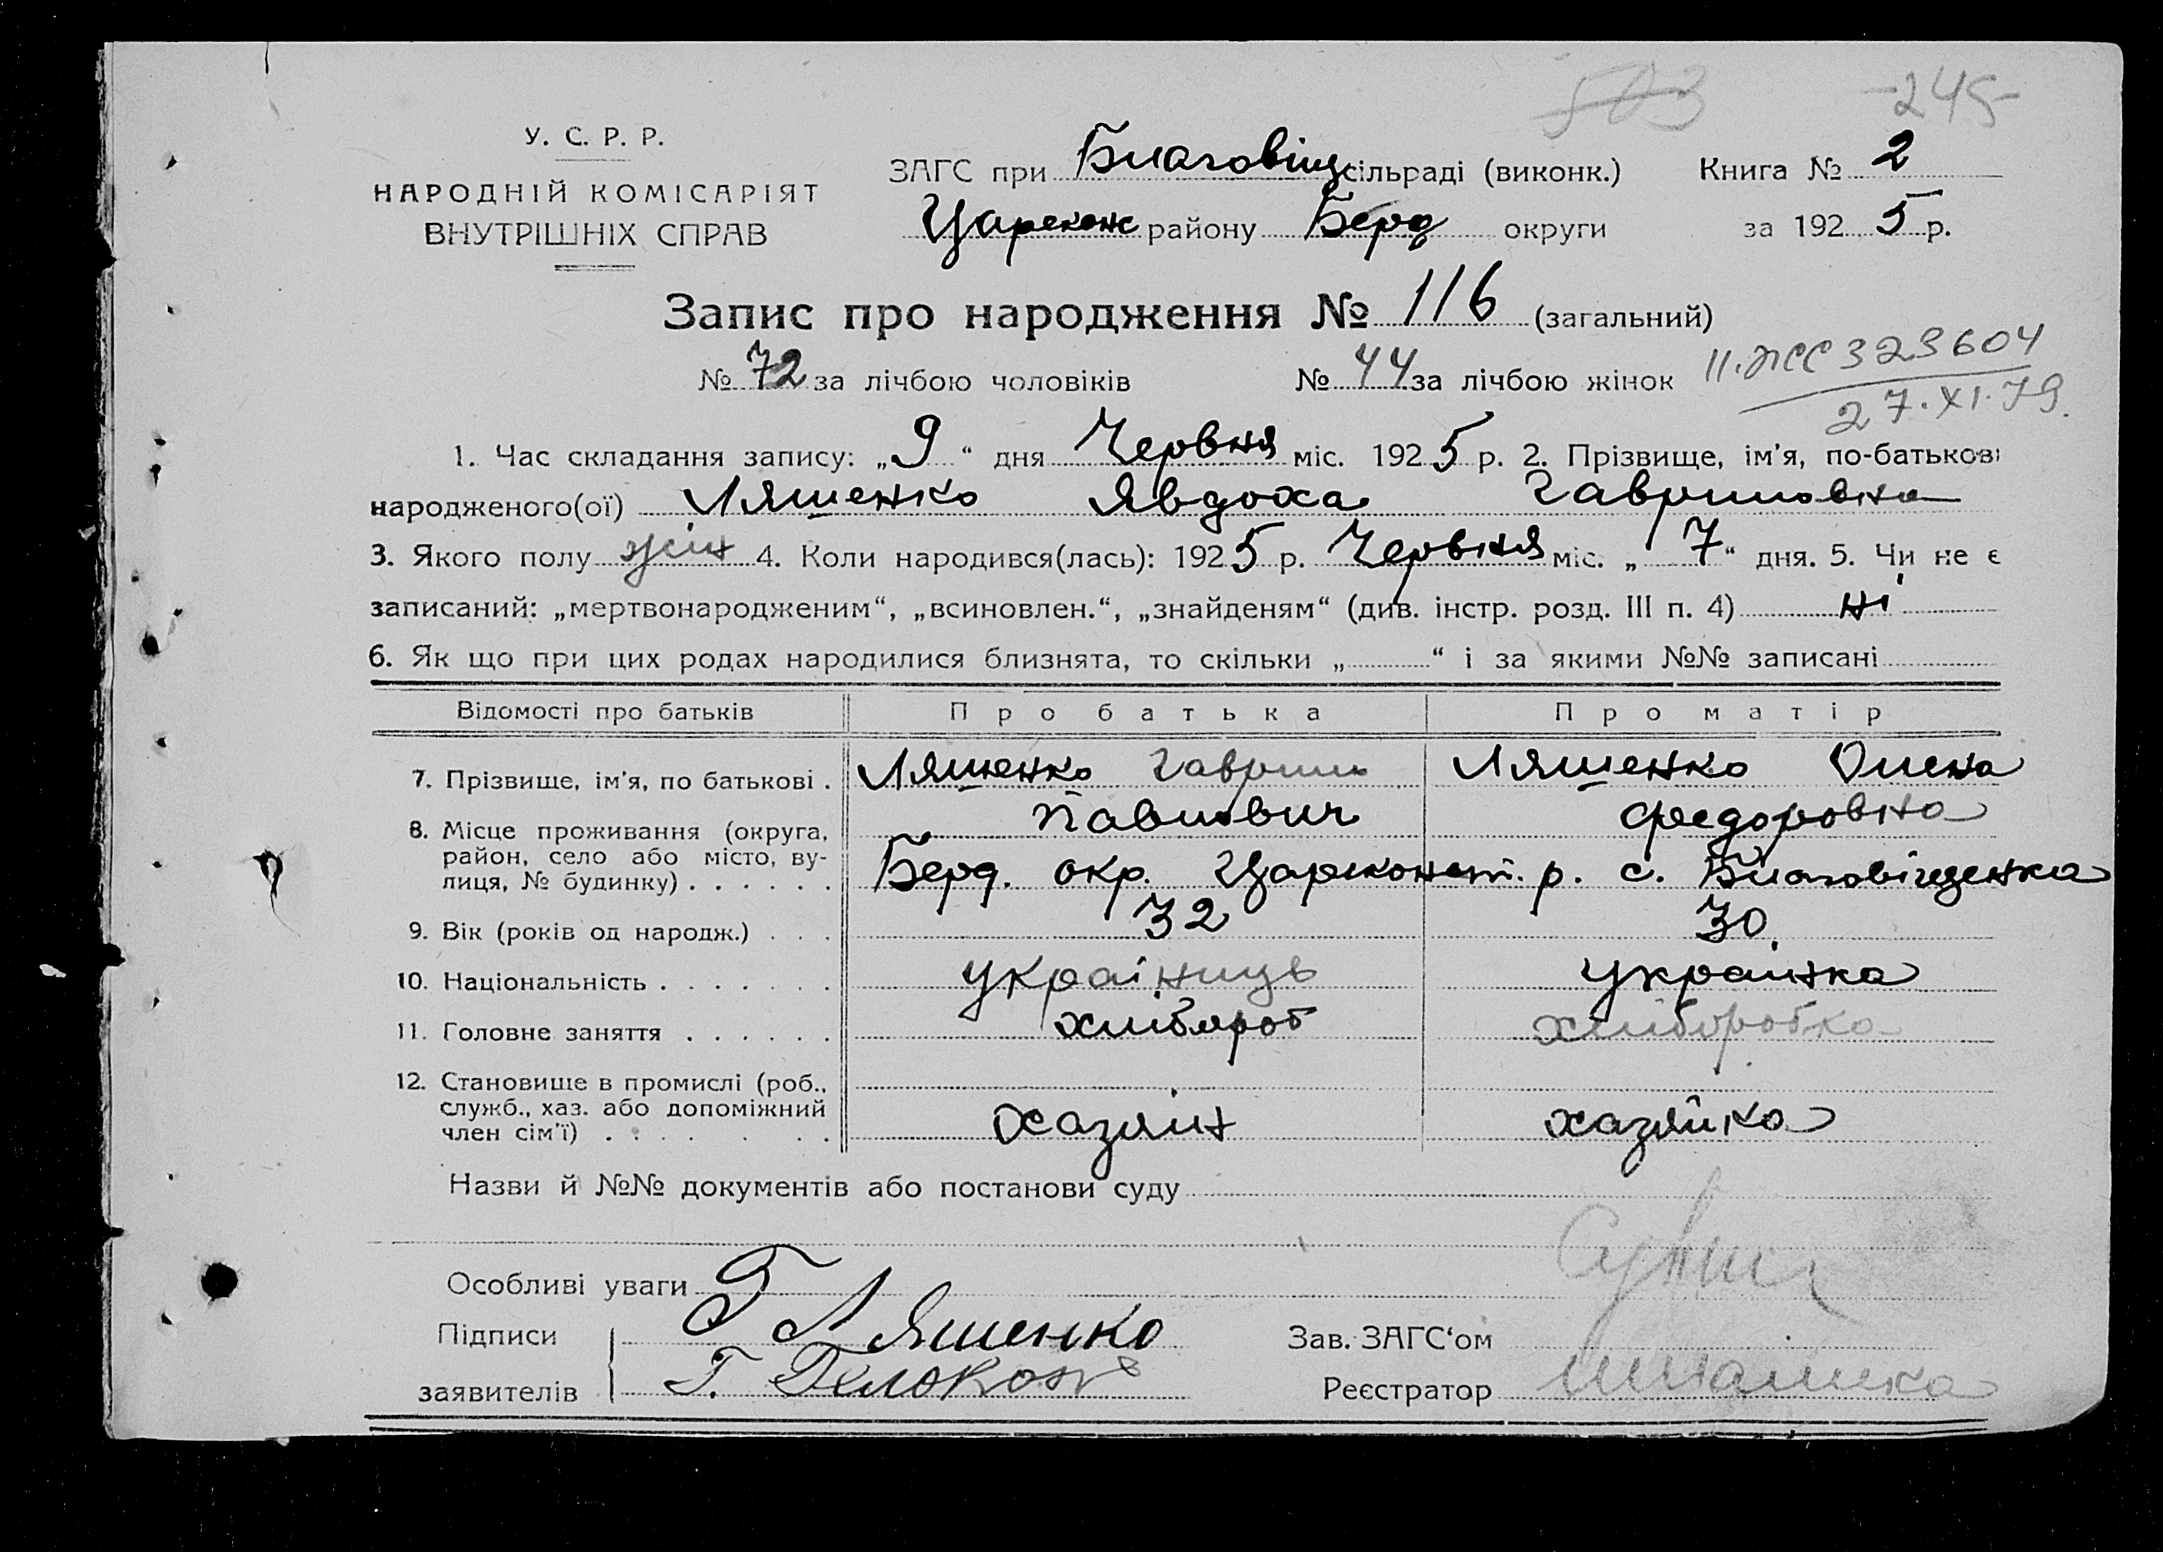 503 245
У. С. Р. Р.
НАРОДНІЙ КОМІСАРІЯТ
ВНУТРІШНІХ СПРАВ
ЗАГС при Благовіщ сільраді (виконк.) Книга № 2
Царекон району Берд округи за 1925 р.
Запис про народження № 116 (загальний)
№ 72 за лічбою чоловіків № 44 за лічбою жінок
323604
27.XI.79.
1. Час складання запису: „9“ дня Червня міс. 1925 р. 2. Прізвище, ім'я, по-батькові
народженого(ої) Ляшенко Явдоха Гавриловна
3. Якого полу жін 4. Коли народився(лась): 1925 р. Червня міс. „7“ дня. 5. Чи не є
записаний: „мертвонародженим“, „всиновлен.“, „знайденям“ (див. інстр. розд. III п. 4) ні
6. Як що при цих родах народилися близнята, то скільки „ “ і за якими №№ записані
Відомості про батьків Про батька Про матір
7. Прізвище, ім'я, по батькові . Ляшенко Гаврило Ляшенко Олена
Павлович Федоровна
8. Місце проживання (округа,
район, село або місто, ву-
лиця, № будинку) . . . . . . Берд. окр. Цареконст. р. с. Благовіщенка
9. Вік (років од народж.) . . . 32 30
10. Національність . . . . . . . україниць українка
11. Головне заняття . . . . . . хлібороб хлiборобка
12. Становище в промислі (роб.,
служб., хаз. або допоміжний
член сім'ї) . . . . . . . Хазяін хазяйка
Назви й №№ документів або постанови суду
Особливі уваги
Підписи Г Ляшенко Зав. ЗАГС‘ом
заявителів Г. Белоконь Реєстратор